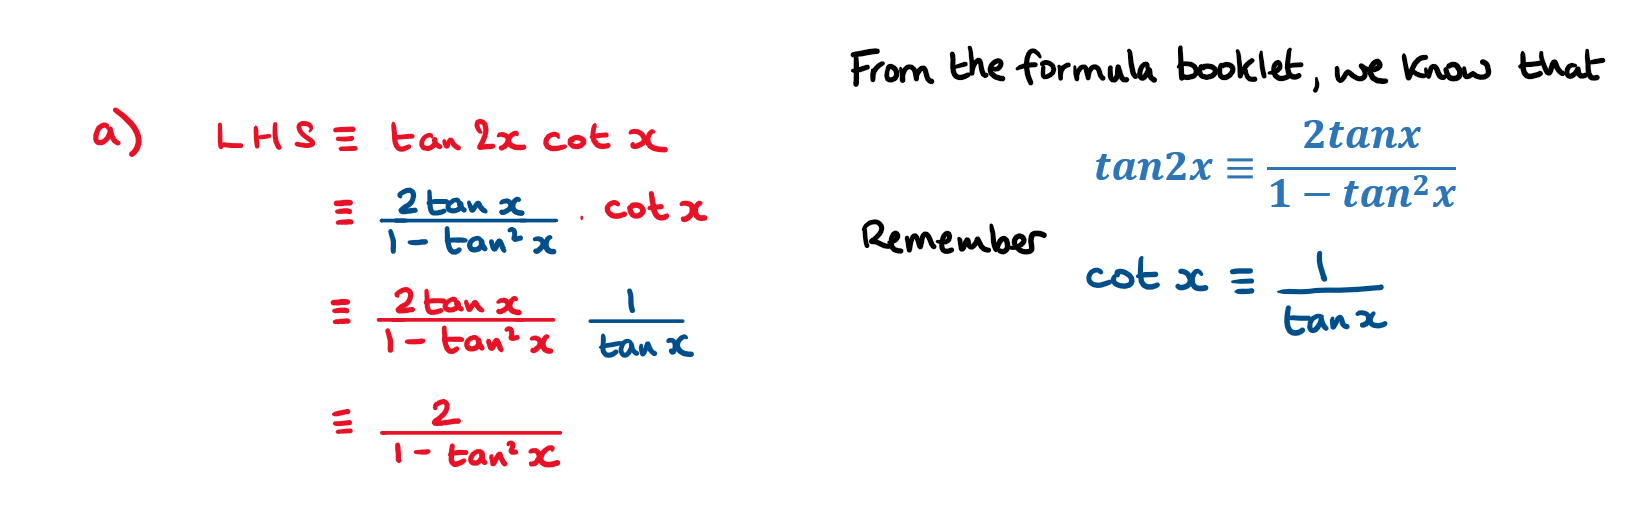 a) LHS ≡ tan 2x cot x
≡ 2 tan x / 1 - tan² x . cot x
≡ 2 tan x / 1 - tan² x 1 / tan x
≡ 2 / 1 - tan² x
From the formula booklet, we know that
tan2x ≡ 2tanx / 1 − tan²x
Remember
cot x ≡ 1 / tan x